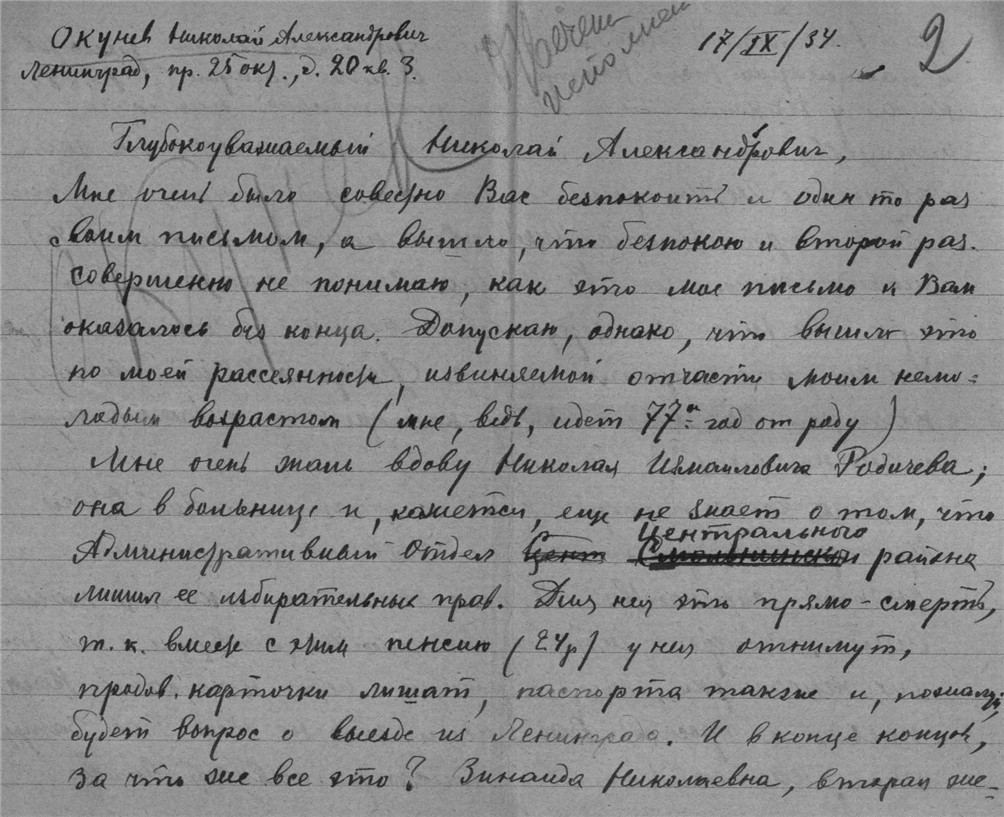 Окунев Николай Александрович
Ленинград, пр. 25 окт., д. 20 кв. 3.
17/IX/34.
2
Глубокоуважаемый Николай Александрович,
Мне очень было совестно Вас безпокоить и один то раз
своим письмом, а вышло, что безпокою и второй раз.
Совершенно не понимаю, как это мое письмо к Вам
оказалось без конца. Допускаю, однако, что вышло это
по моей рассеянности, извиняемой отчасти моим немо=
лодым возрастом (мне, ведь, идет 77й год от роду)
Мне очень жаль вдову Николая Измаиловича Родичева;
она в больнице и, кажется, еще не знает о том, что
Административный Отдел Цент Смольнинского Центрального района
лишил ее избирательных прав. Для нея это прямо - смерть,
т. к. вместе с этим пенсию (24р) у нея отнимут,
продов. карточки лишат, паспорта также и, пожалуй,
будет вопрос о выезде из Ленинграда. И в конце концов,
за что же все это? Зинаида Николаевна, вторая же-